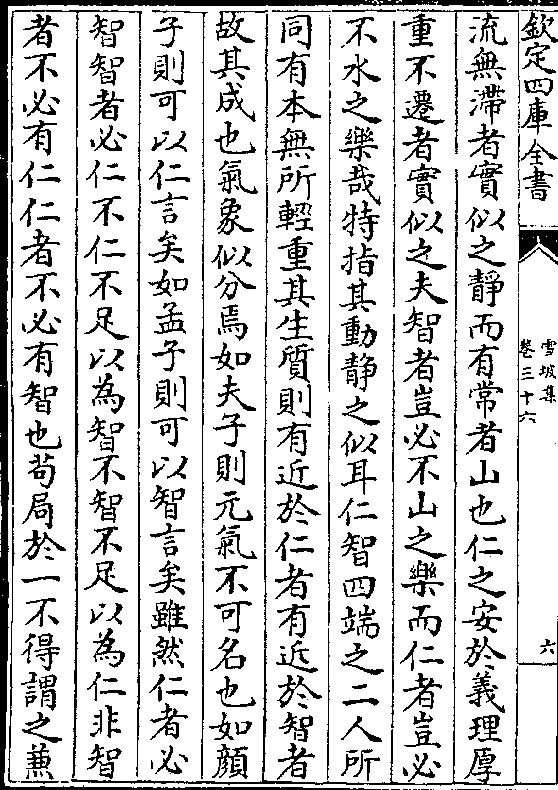 欽定四庫全書
雪坡集
卷三十六
六
流無滯者實似之靜而有常者山也仁之安於義理厚
重不遷者實似之夫智者豈必不山之樂而仁者豈必
不水之樂哉特指其動靜之似耳仁智四端之二人所
同有本無所輕重其生質則有近於仁者有近於智者
故其成也氣象似分焉如夫子則元氣不可名也如顔
子則可以仁言矣如孟子則可以智言矣雖然仁者必
智智者必仁不仁不足以為智不智不足以為仁非智
者不必有仁仁者不必有智也苟局於一不得謂之兼